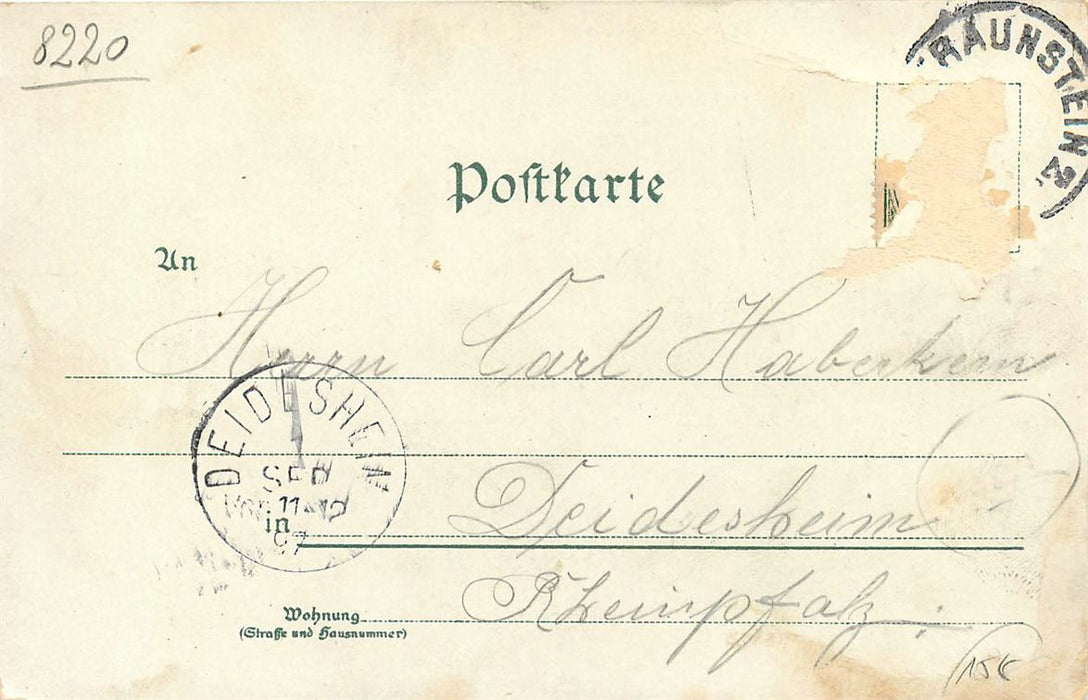 8220
TRAUNSTEIN 2
Postkarte
An
Herrn Carl Haberkern
DEIDESHEIM
SEP
11-12
97
in Deidesheim
Rheinpfalz.
Wohnung
(Straße und Hausnummer)
15€